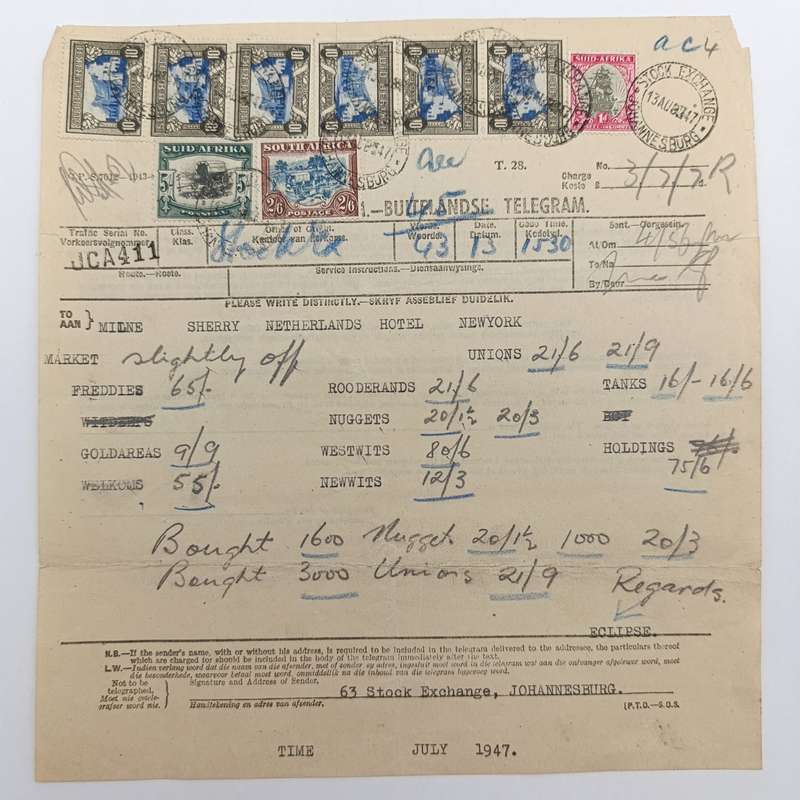 ac4
SUID-AFRIKA
1d
STOCK EXCHANGE
13 AUG 47
JOHANNESBURG
SUID AFRIKA
5/-
POSSEËL
SOUTH AFRICA
2/6
POSTAGE
T. 28.
Charge
Koste
No.
3/7/7 R
s. d.
45
BUITELANDSE TELEGRAM.
Traffic Serial No.
Vorkeersvolgnommer.
Class.
Klas.
Office of Origin.
Kantoor van Herkoms.
Words.
Woorde.
Date.
Datum.
Code Time.
Kodetyd.
Sent.—Oorgesein.
JCA411
43 13 1530
At/Om
To/Na
By/Deur
Route.—Roete.
Service Instructions.—Diensaanwysings.
PLEASE WRITE DISTINCTLY.—SKRYF ASSEBLIEF DUIDELIK.
TO
AAN } MILNE SHERRY NETHERLANDS HOTEL NEWYORK
MARKET slightly off UNIONS 21/6 21/9
FREDDIES 65/- ROODERANDS 21/6 TANKS 16/- 16/6
WITDEEPS NUGGETS 20/1½ 20/3
GOLDAREAS 9/9 WESTWITS 80/6 HOLDINGS
75/6
WELKOMS 55/- NEWWITS 12/3
Bought 1600 Nuggets 20/1½ 1000 20/3
Bought 3000 Unions 21/9 Regards.
ECLIPSE.
N.B.—If the sender's name, with or without his address, is required to be included in the telegram delivered to the addressee, the particulars thereof
which are charged for should be included in the body of the telegram immediately after the text.
L.W.—Indien verlang word dat die naam van die afsender, met of sonder sy adres, ingesluit moet word in die telegram wat aan die ontvanger afgelewer word, moet
die besonderhede, waarvoor betaal moet word, onmiddellik na die inhoud van die telegram ingevoeg word.
Not to be
telegraphed.
Moet nie getele-
grafeer word nie.
Signature and Address of Sender.
63 Stock Exchange, JOHANNESBURG.
Handtekening en adres van afsender.
(P.T.O.—S.O.S.
TIME JULY 1947.